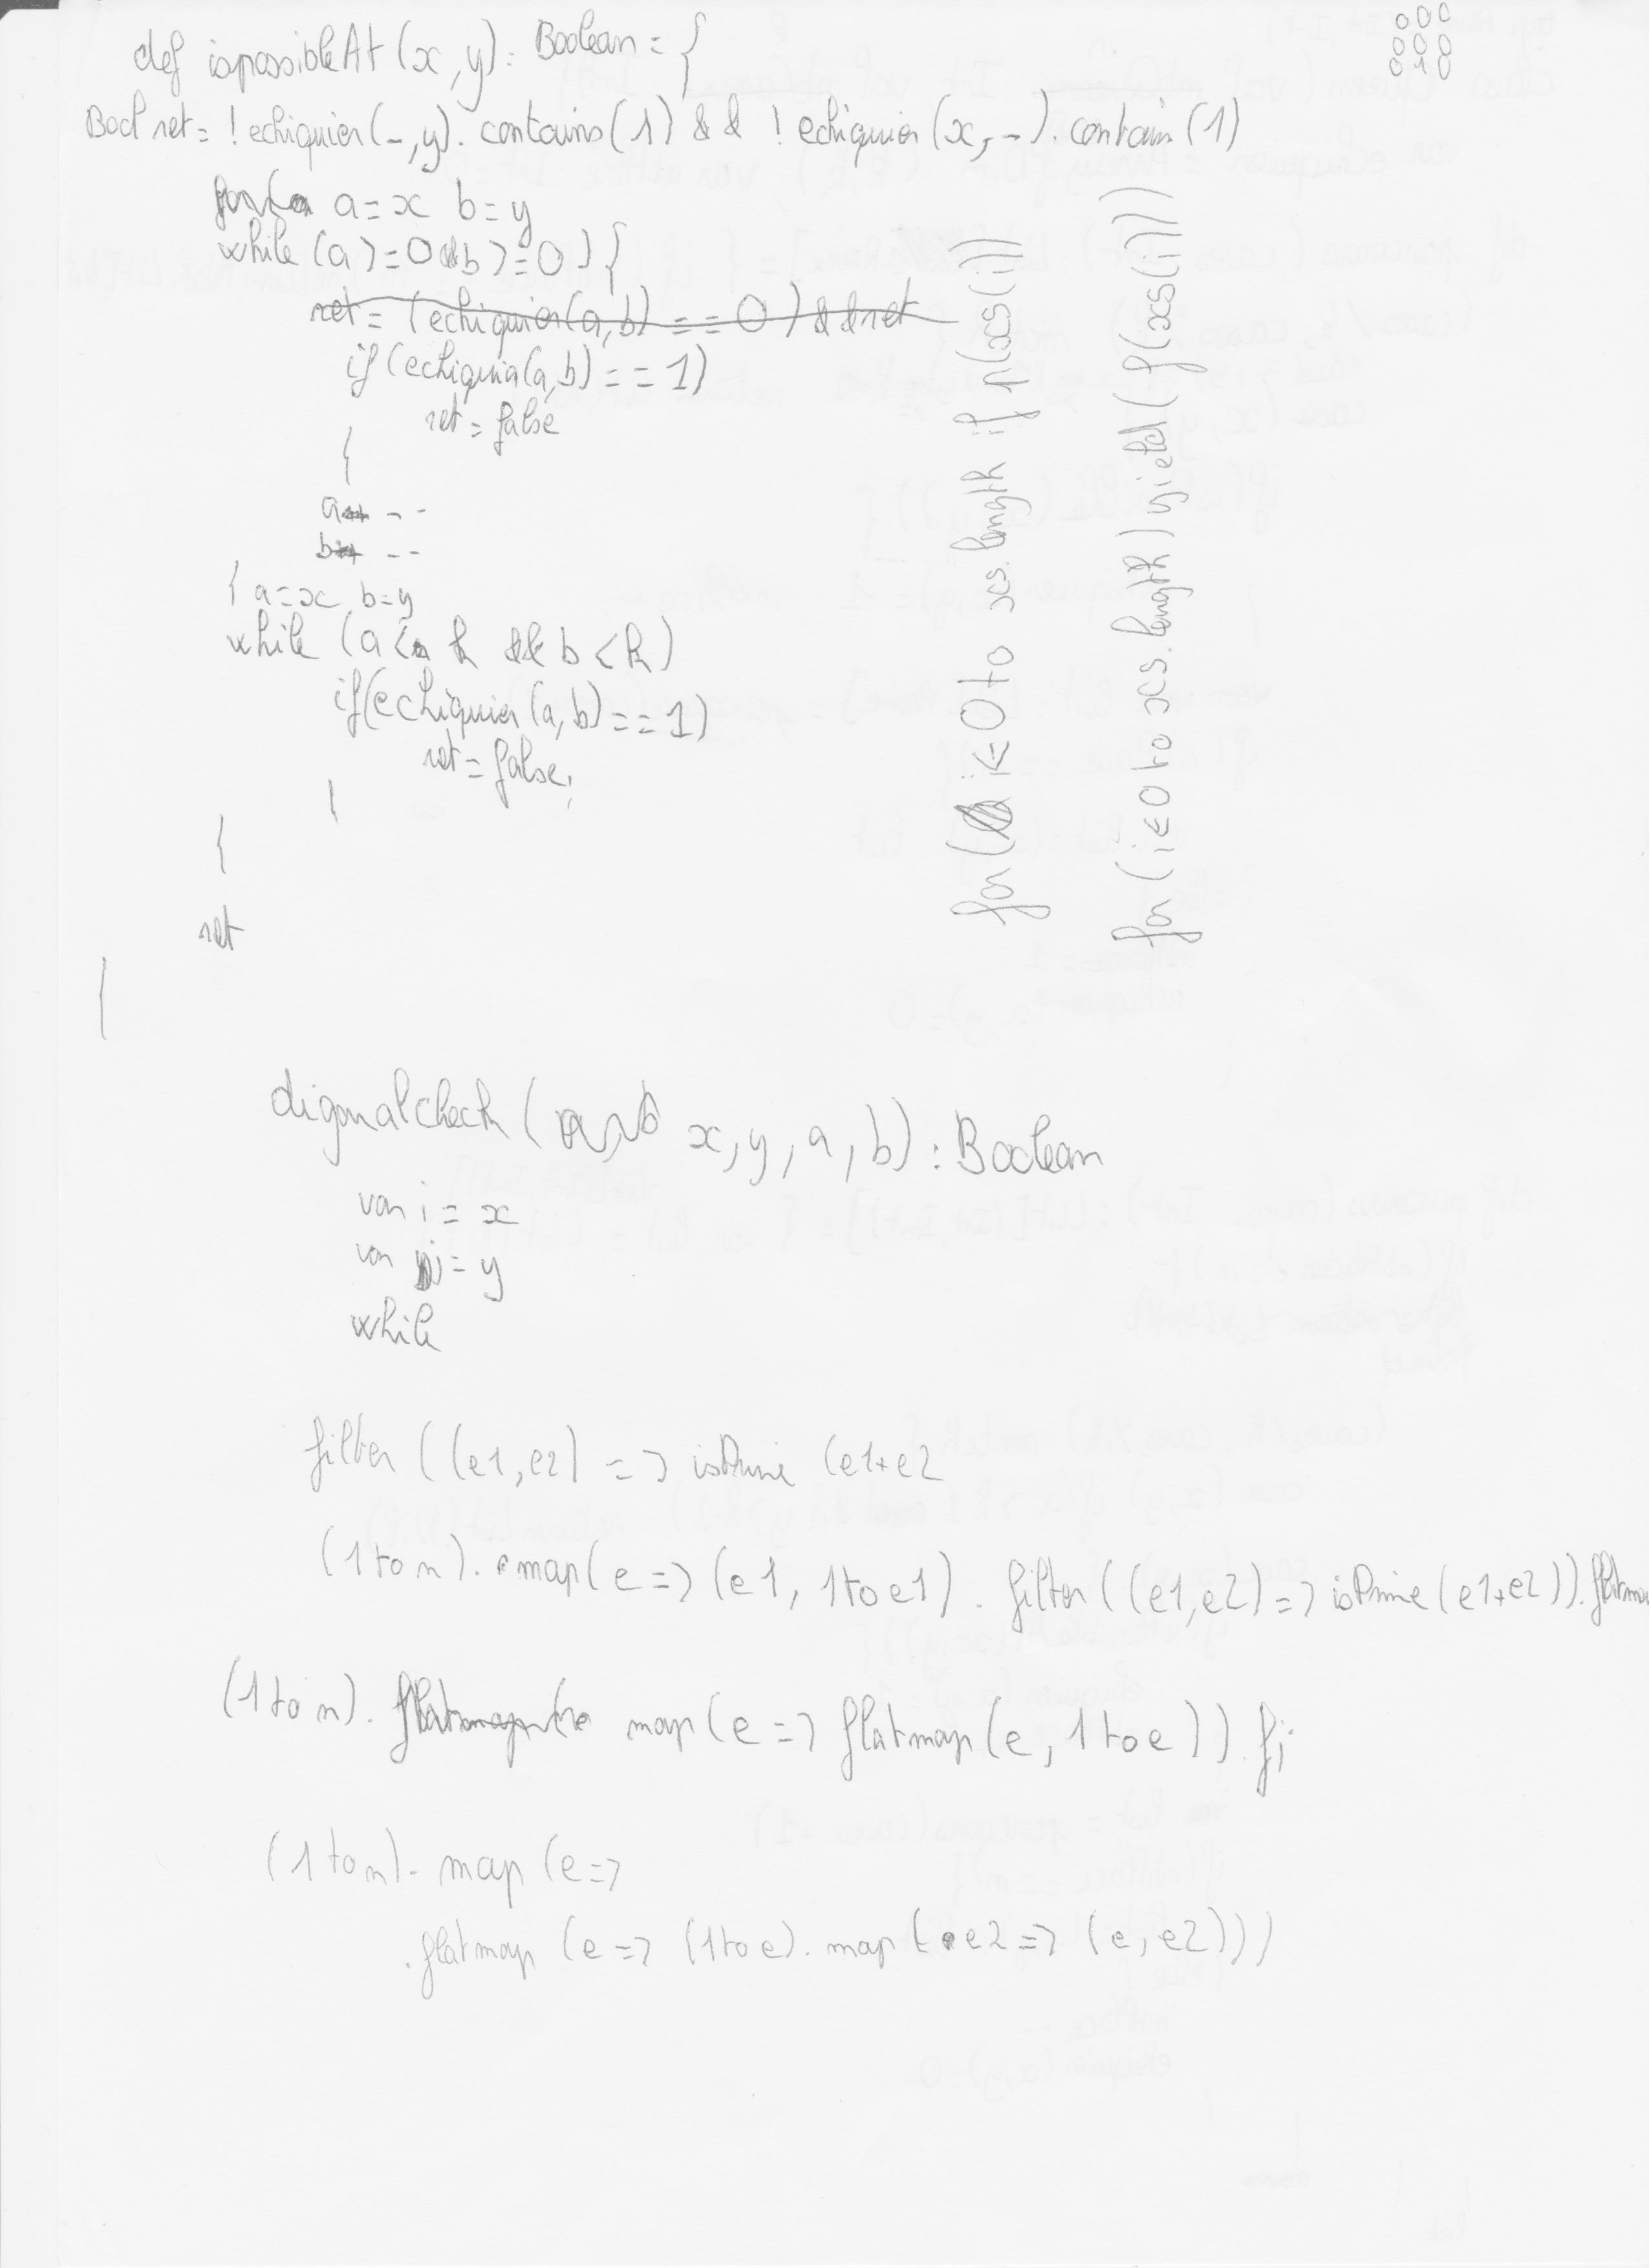 def ispossibleAt (x, y): Boolean = {
000
000
010
Bool ret = ! echiquier(-, y). contains(1) && ! echiquier(x, -). contain(1)
a = x b = y
while (a >= 0 && b >= 0) {
ret = (echiquier(a, b) == 0) && ret
if (echiquier(a, b) == 1)
ret = false
}
a --
b --
} a = x b = y
while (a < h && b < h)
if(echiquier(a, b) == 1)
ret = false;
}
}
ret
}
for ( i <= 0 to xs.length if p(xs(i))
for (i <= 0 to xs.length) yield (f(xs(i)))
digonalcheck ( x, y, a, b) : Boolean
var i = x
var j = y
while
filter ((e1, e2) => isPrime (e1+e2
(1 to n). map(e => (e1, 1 to e1). filter ((e1, e2) => isPrime (e1+e2)). flatma
(1 to n). flatmap(e map (e => flatmap (e, 1 to e)). fi
(1 to n). map (e =>
.flatmap (e => (1 to e). map ( e2 => (e, e2)))